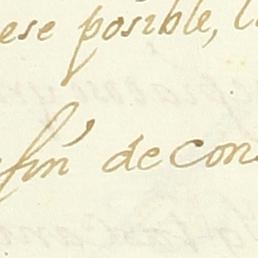 ese posible, l
fin de con